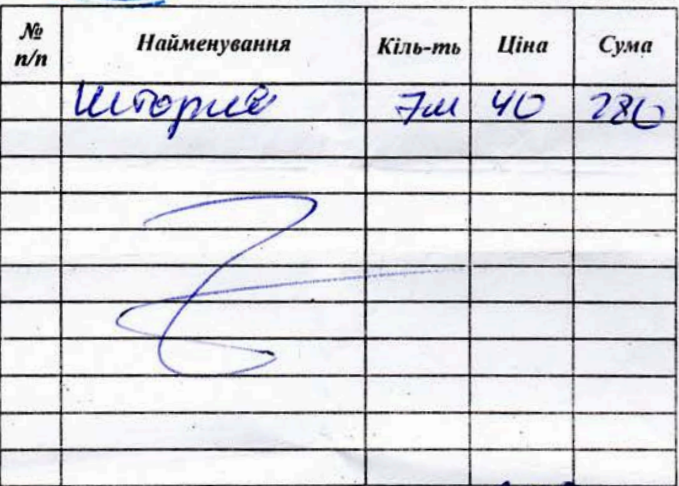 № п/п Найменування Кіль-ть Ціна Сума
7м 40 280